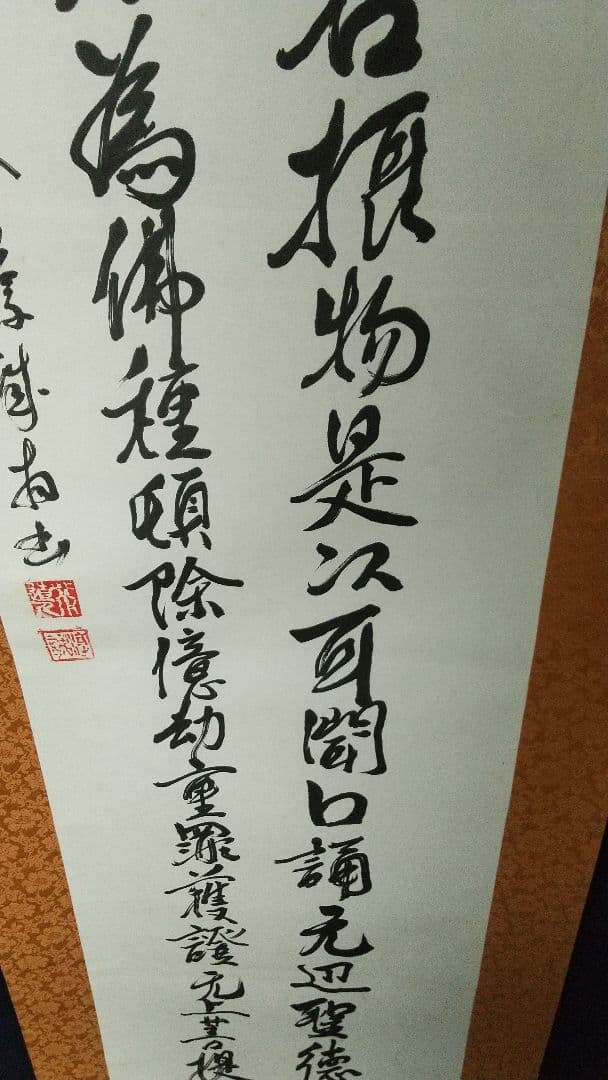 名摂物是以耳聞口誦无辺聖德
為佛種頓除億劫重罪獲證无上菩提
淳誠書